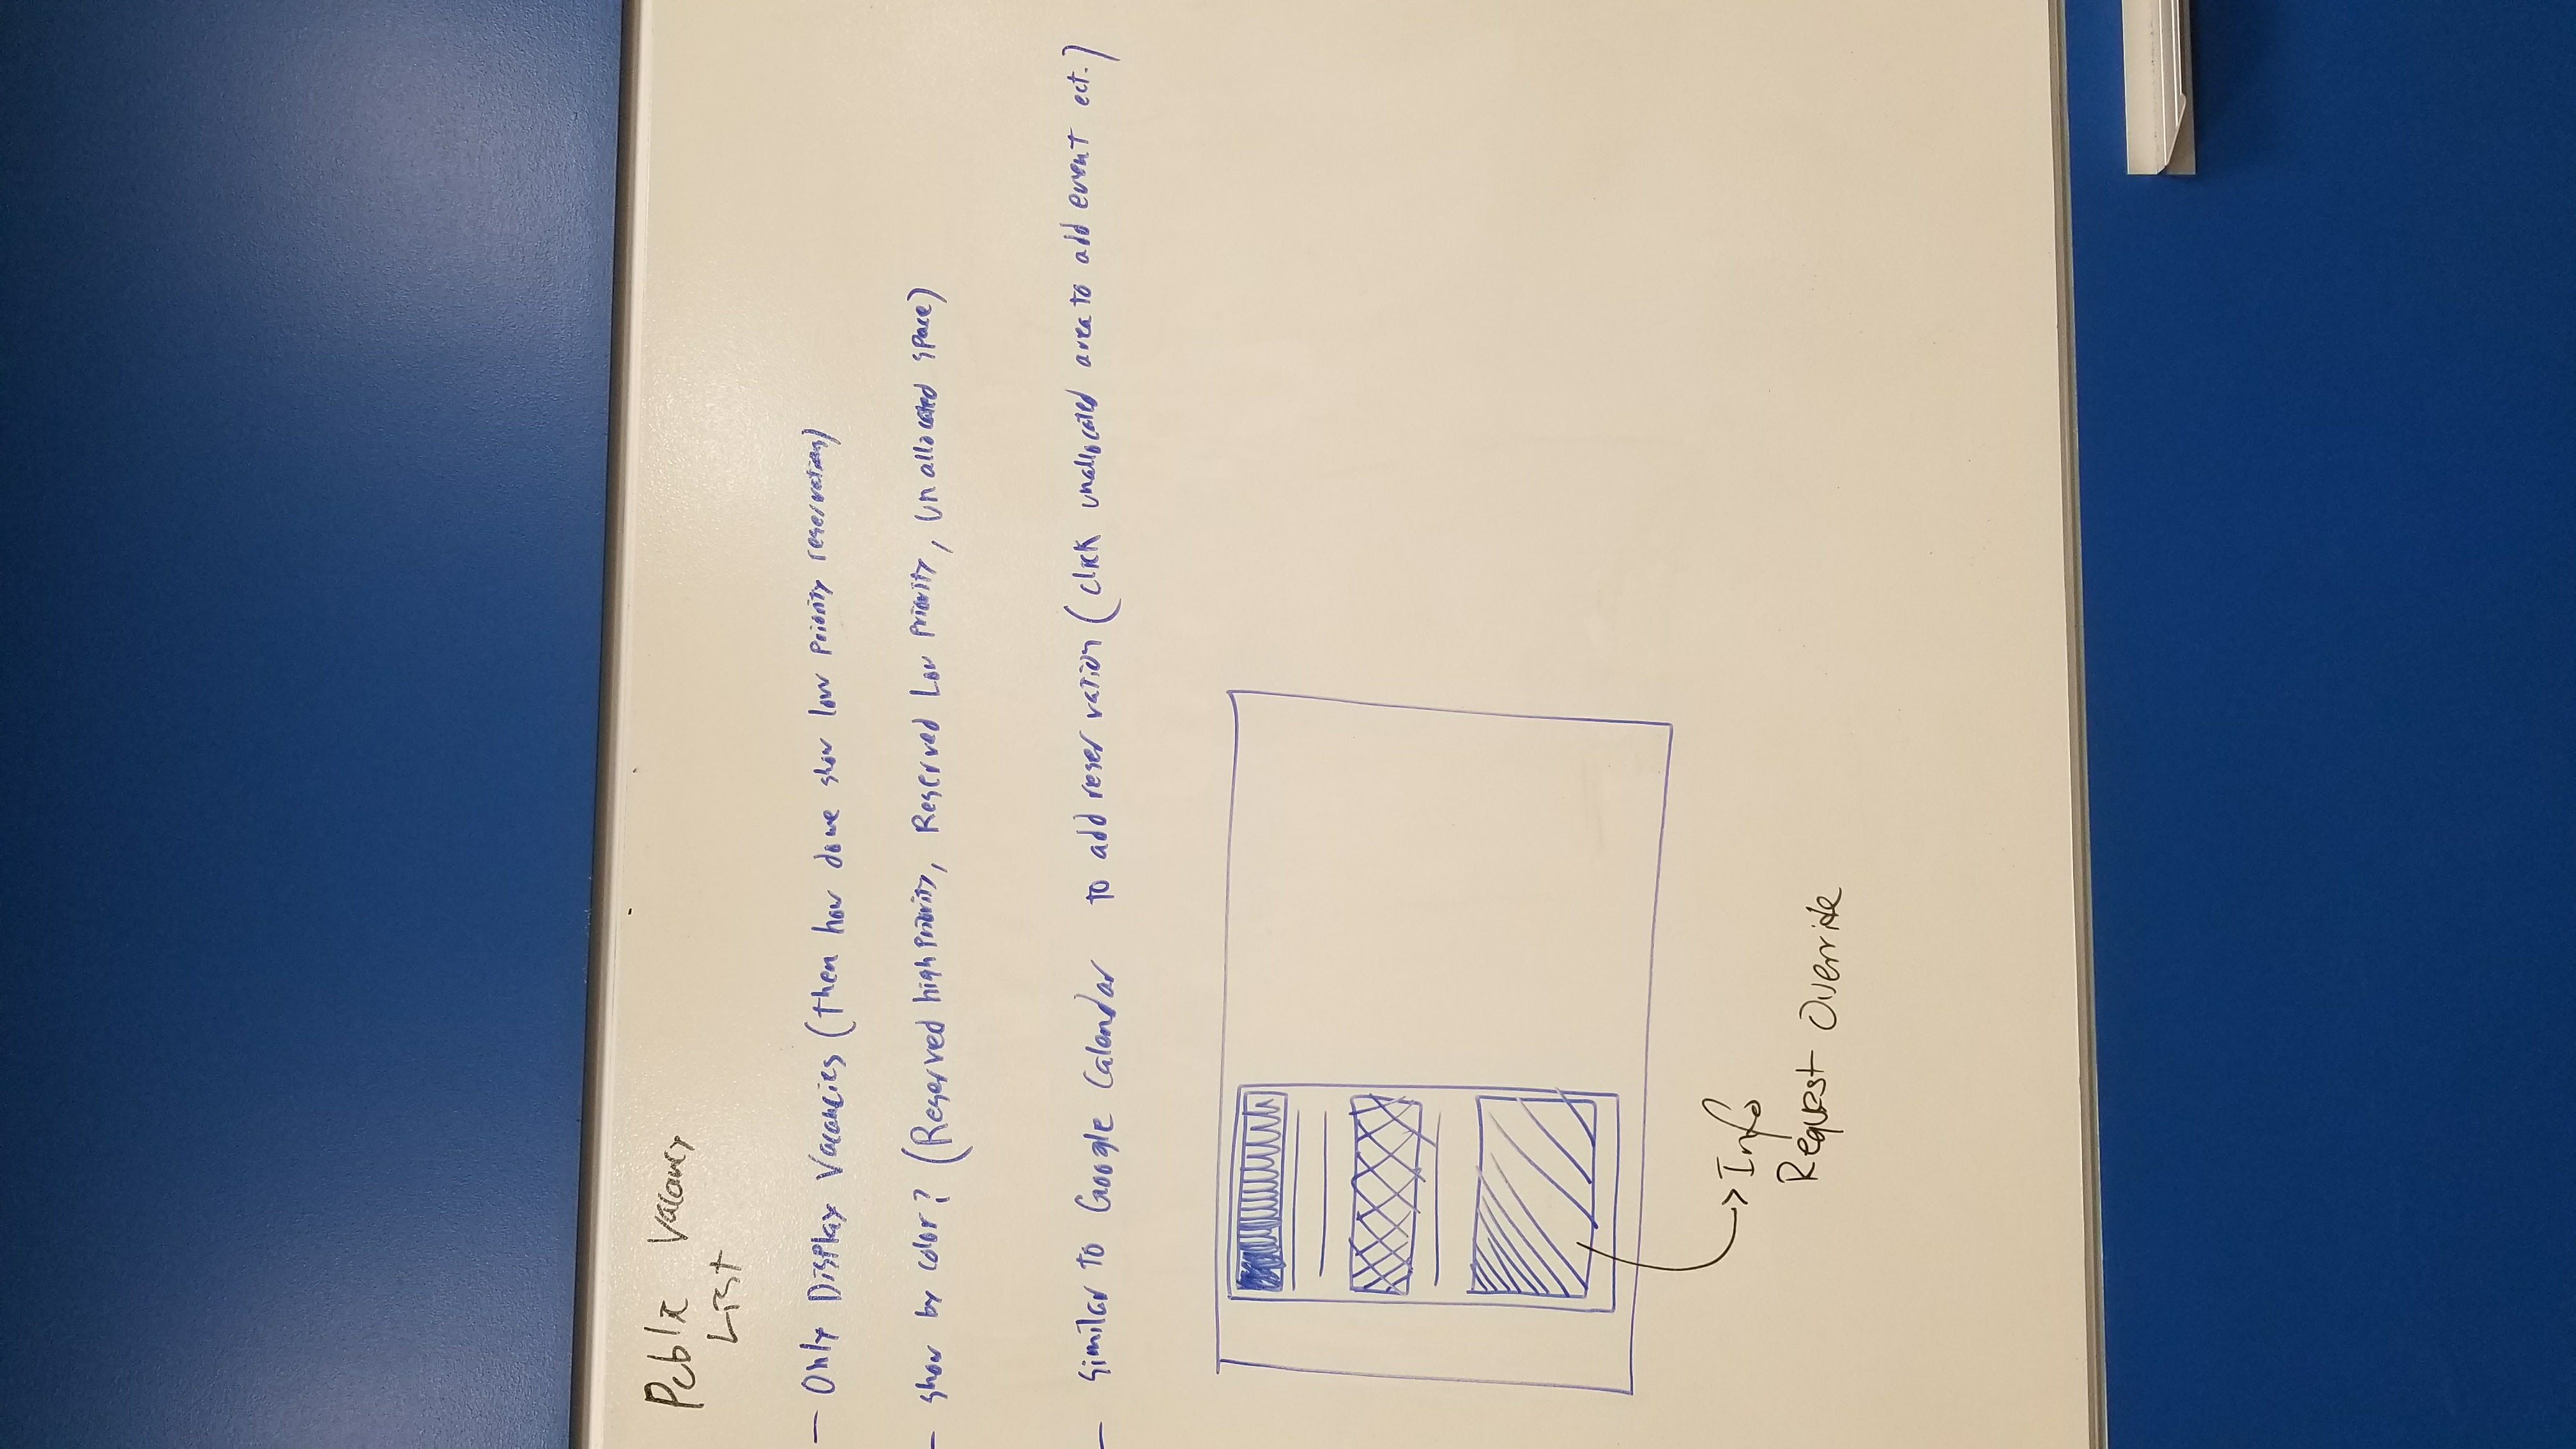 Public Vacancy
List
- Only Display Vacancies (then how do we show low priority reservations)
- show by color? (Reserved high priority, Reserved Low priority, unallocated space)
- Similar to Google Calendar to add reservation (click unallocated area to add event ect.)
→ Info
Request Override